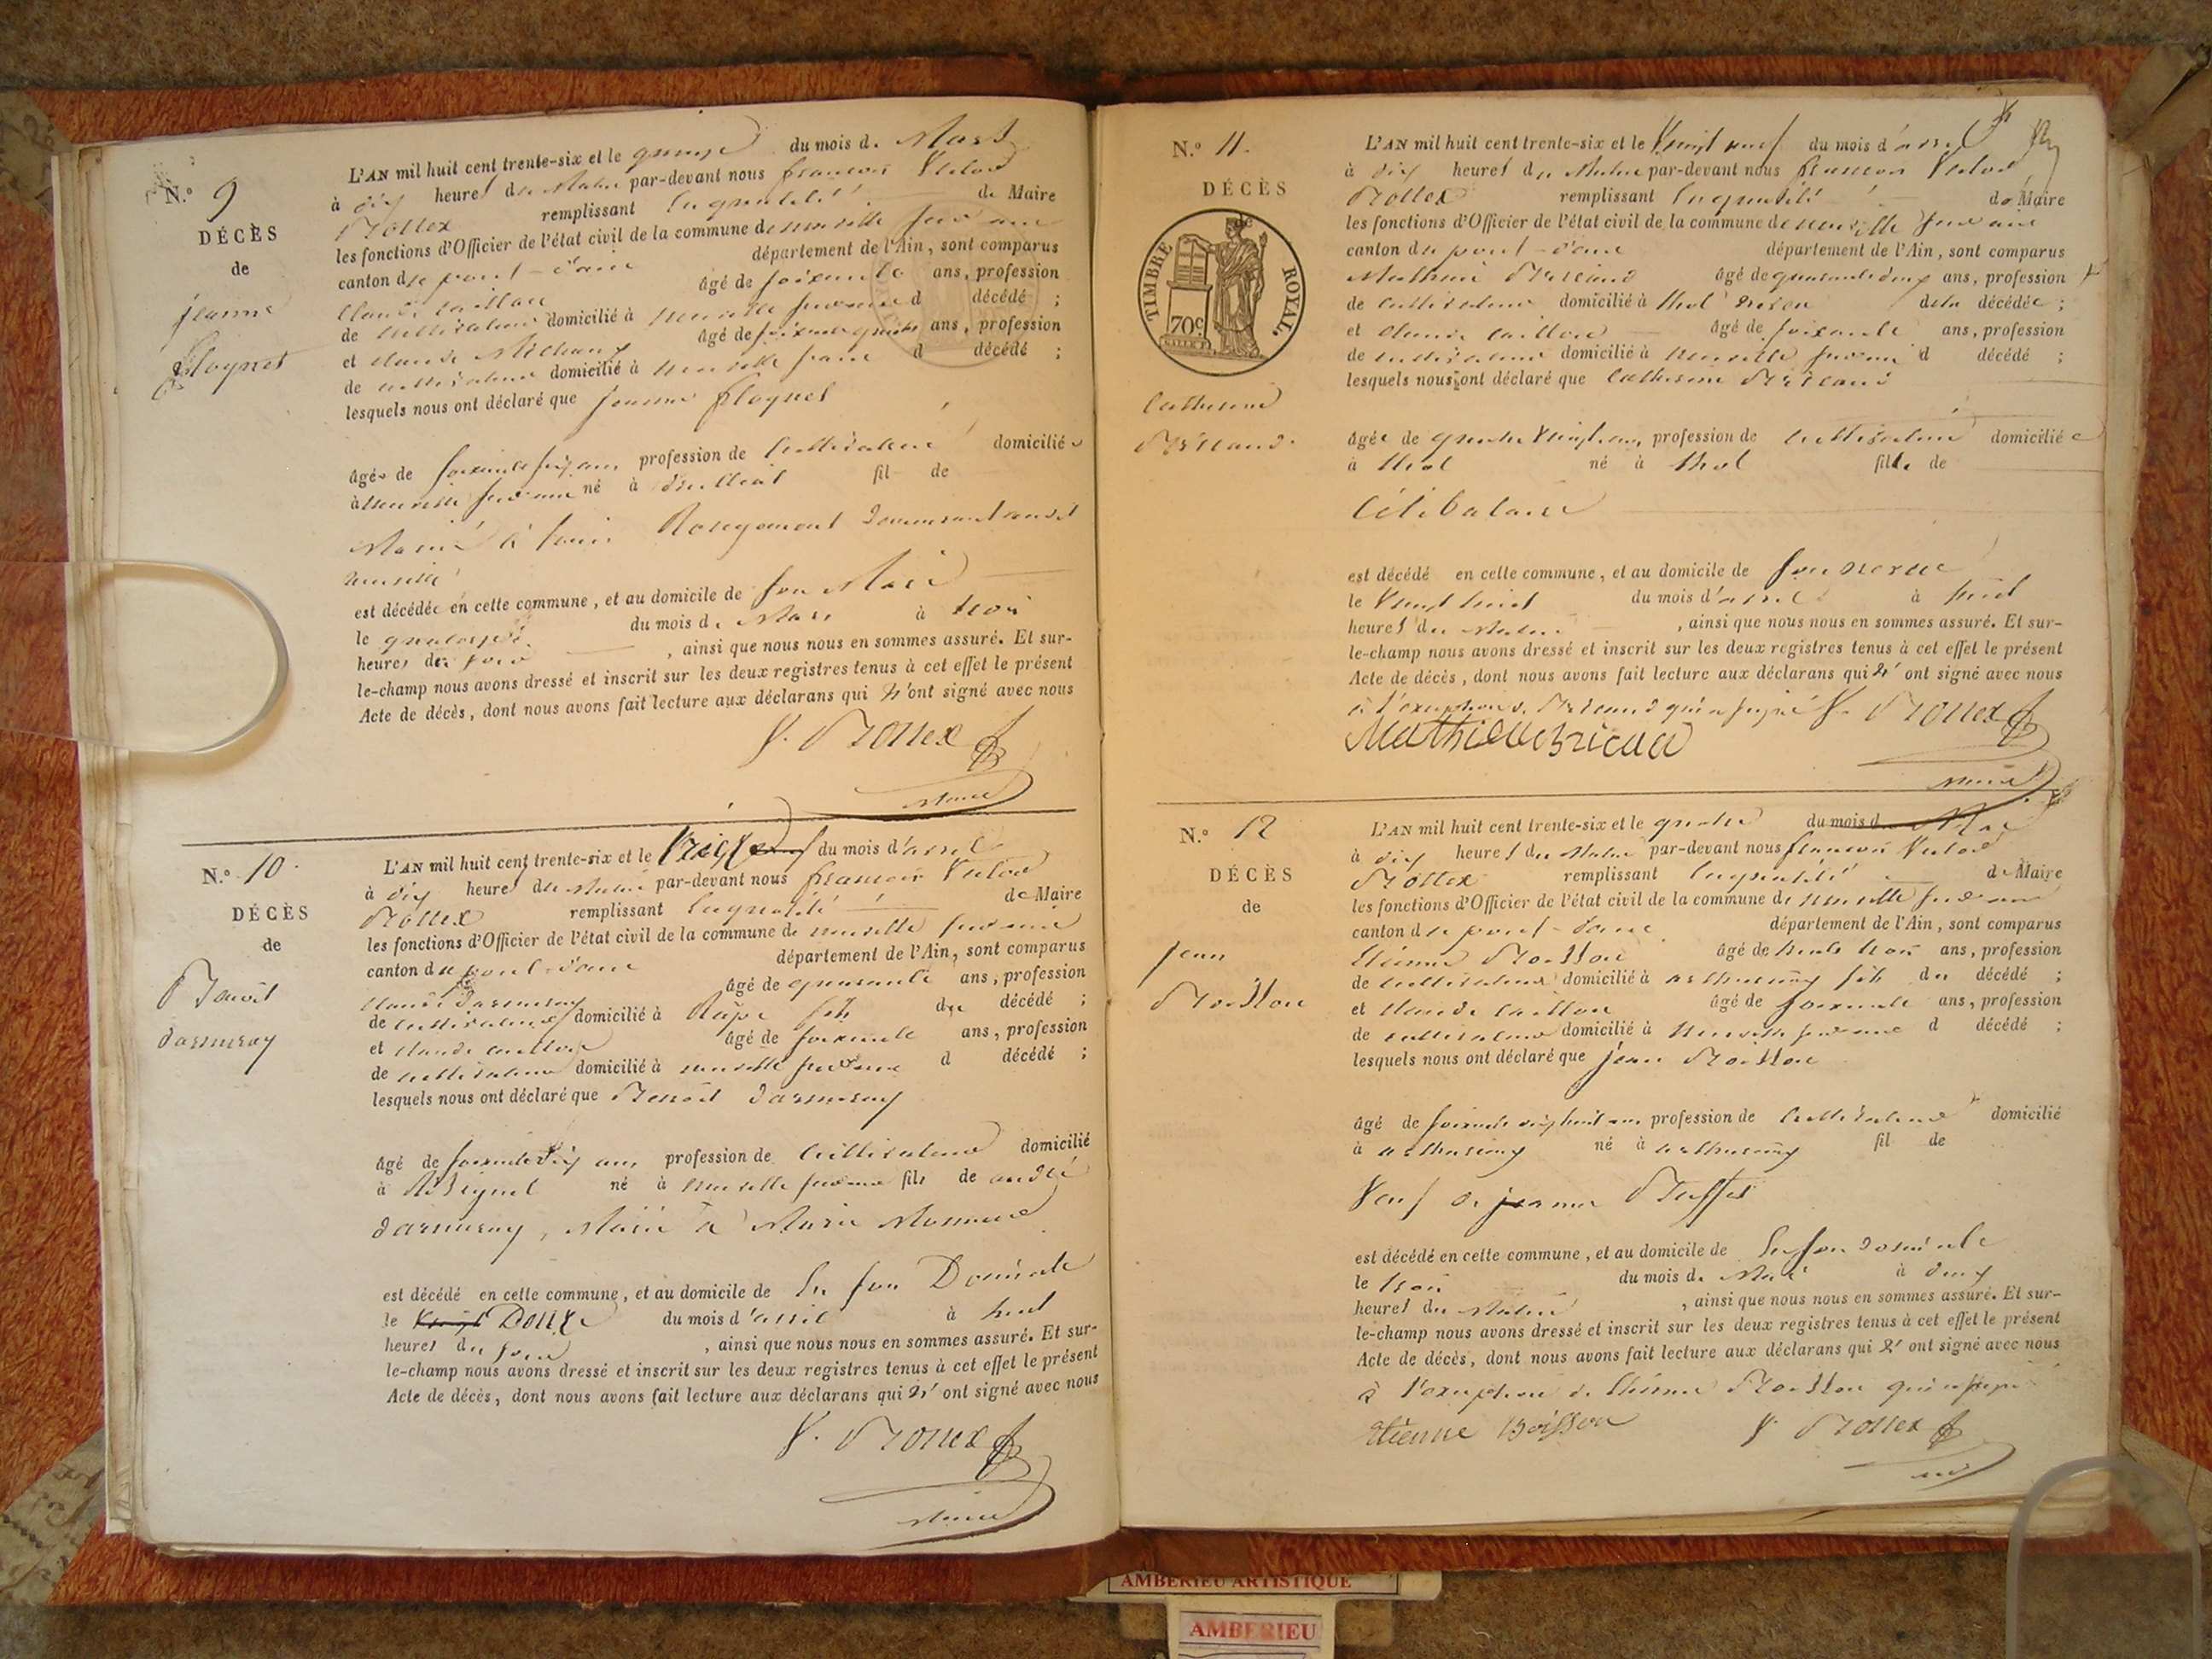 N.º 9
DÉCÈS
de
jeanne
floquet
L'AN mil huit cent trente-six et le quinze du mois de Mars
à dix heures du Matin par-devant nous françois Victor
Bottex remplissant en qualité de Maire
les fonctions d'Officier de l'état civil de la commune de neuville sur ain
canton de pont-d'ain département de l'Ain, sont comparus
Claude caillon âgé de soixante ans, profession
de cultivateur domicilié à neuville sur ain d décédé ;
et claude Michaud âgé de soixante quatre ans, profession
de cultivateur domicilié à neuville sur ain d décédé ;
lesquels nous ont déclaré que jeanne floquet
âgée de soixante six ans profession de Cultivateur domiciliée
à neuville sur ain né à fil de
Marié à Rougemont demeurant audit
neuville
est décédée en cette commune, et au domicile de son Mari
le quatorze du mois de Mars à trois
heures du soir , ainsi que nous nous en sommes assuré. Et sur-
le-champ nous avons dressé et inscrit sur les deux registres tenus à cet effet le présent
Acte de décès, dont nous avons fait lecture aux déclarans qui n'ont signé avec nous
V. Bottex
Maire
N.º 10.
DÉCÈS
de
Benoit
darmeray
L'AN mil huit cent trente-six et le treize du mois d'avril
à dix heures du Matin par-devant nous françois Victor
Bottex remplissant en qualité de Maire
les fonctions d'Officier de l'état civil de la commune de neuville sur ain
canton de pont-d'ain département de l'Ain, sont comparus
Claude darmeray âgé de quarante ans, profession
de cultivateur domicilié à fils du décédé ;
et claude caillon âgé de soixante ans, profession
de cultivateur domicilié à neuville sur ain d décédé ;
lesquels nous ont déclaré que Benoit darmeray
âgé de soixante dix ans profession de Cultivateur domicilié
à né à neuville sur ain fils de andré
darmeray, Marié à Marie
est décédé en cette commune, et au domicile de En son Domicile
le Douze du mois d'avril à huit
heures du soir , ainsi que nous nous en sommes assuré. Et sur-
le-champ nous avons dressé et inscrit sur les deux registres tenus à cet effet le présent
Acte de décès, dont nous avons fait lecture aux déclarans qui n'ont signé avec nous
V. Bottex
Maire
N.º 11.
DÉCÈS
TIMBRE ROYAL.
70c
Catherine
Briand.
L'AN mil huit cent trente-six et le Vingt neuf du mois d'avril
à dix heures du Matin par-devant nous françois Victor
Bottex remplissant en qualité de Maire
les fonctions d'Officier de l'état civil de la commune de neuville sur ain
canton de pont-d'ain département de l'Ain, sont comparus
Mathieu Briand âgé de quarante deux ans, profession
de cultivateur domicilié à thol neveu de la décédée ;
et claude caillon âgé de soixante ans, profession
de cultivateur domicilié à neuville sur ain d décédé ;
lesquels nous ont déclaré que Catherine Briand
âgée de quatre Vingt ans, profession de Cultivateur domiciliée
à thol né à thol fille de
Célibataire
est décédé en cette commune, et au domicile de son neveu
le Vingt huit du mois d'avril à huit
heures du Matin , ainsi que nous nous en sommes assuré. Et sur-
le-champ nous avons dressé et inscrit sur les deux registres tenus à cet effet le présent
Acte de décès, dont nous avons fait lecture aux déclarans qui n'ont signé avec nous
à l'exception de Briand qui a signé V. Bottex
Maire
N.º 12
DÉCÈS
de
jean
Boisson
L'AN mil huit cent trente-six et le quatre du mois de Mai
à dix heures du Matin par-devant nous françois Victor
Bottex remplissant en qualité de Maire
les fonctions d'Officier de l'état civil de la commune de neuville sur ain
canton de pont-d'ain département de l'Ain, sont comparus
Etienne Boisson âgé de trente trois ans, profession
de cultivateur domicilié à fils du décédé ;
et claude caillon âgé de soixante ans, profession
de cultivateur domicilié à neuville sur ain d décédé ;
lesquels nous ont déclaré que jean Boisson
âgé de soixante dix huit ans profession de Cultivateur domicilié
à né à fil de
Veuf de jeanne
est décédé en cette commune, et au domicile de En son domicile
le trois du mois de Mai à deux
heures du Matin , ainsi que nous nous en sommes assuré. Et sur-
le-champ nous avons dressé et inscrit sur les deux registres tenus à cet effet le présent
Acte de décès, dont nous avons fait lecture aux déclarans qui n'ont signé avec nous
à l'exception de Etienne Boisson qui a signé
Etienne Boisson V. Bottex
AMBERIEU ARTISTIQUE
AMBERIEU